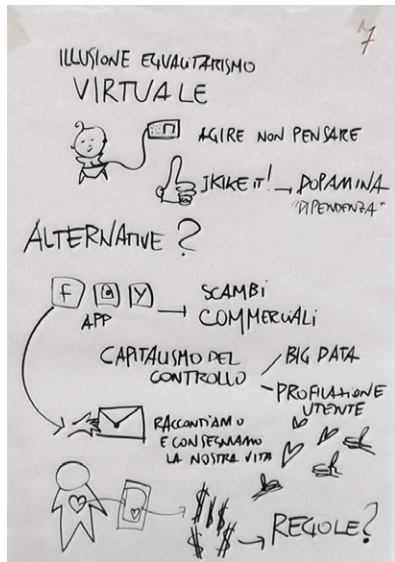 7
ILLUSIONE EQUALITARISMO
VIRTUALE
AGIRE NON PENSARE
IKIKE IT! → DOPAMINA
"DIPENDENZA"
ALTERNATIVE?
f Y → SCAMBI
APP COMMERCIALI
CAPITALISMO DEL BIG DATA
CONTROLLO PROFILAZIONE
UTENTE
RACCONTIAMO
E CONSEGNAMO
LA NOSTRA VITA
$ $ $ $ → REGOLE?